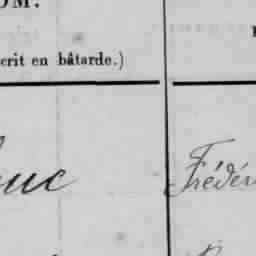 OM.
crit en bâtarde.)
uc Frédér